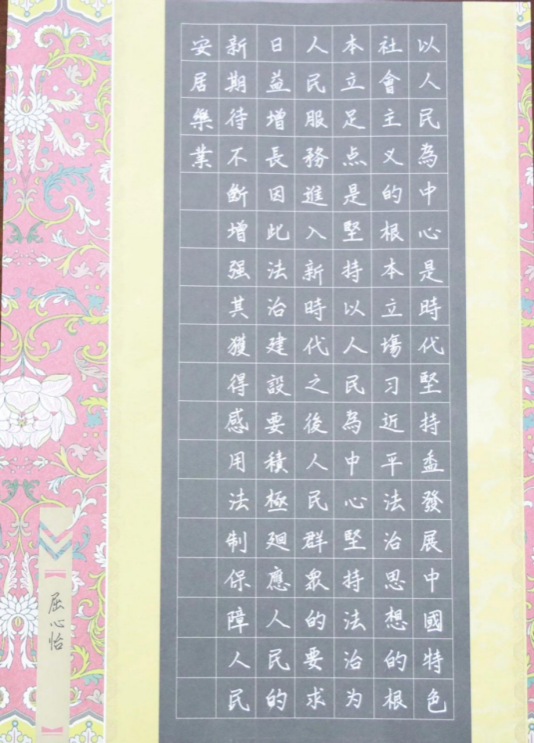 以人民為中心是時代堅持盍發展中國特色
社會主义的根本立塲习近平法治思想的根
本立足点是堅持以人民為中心堅持法治为
人民服務進入新時代之後人民群衆的要求
日益增長因此法治建設要積極廻應人民的
新期待不斷增强其獲得感用法制保障人民
安居樂業
屈心怡